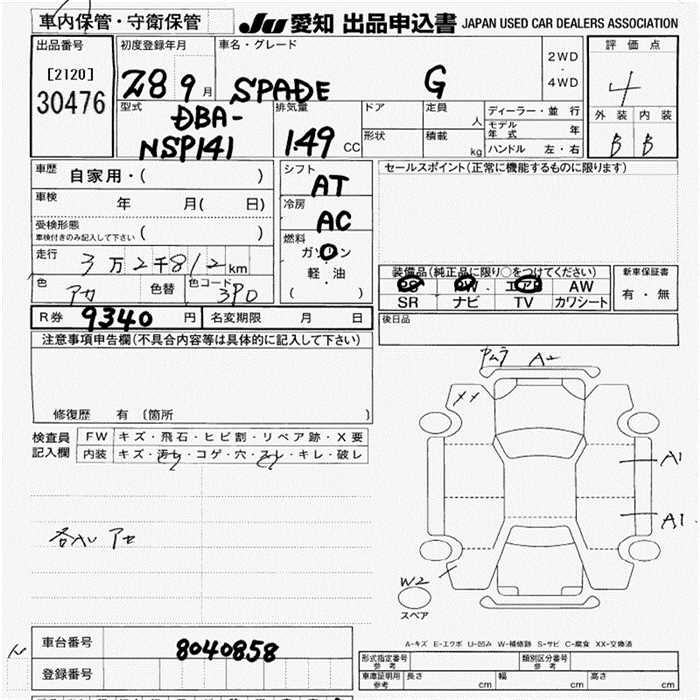 車内保管・守衛保管
JU 愛知 出品申込書 JAPAN USED CAR DEALERS ASSOCIATION
出品番号
[2120]
30476
初度登録年月
28 9 月
車名・グレード
SPADE G
2WD
・
4WD
評価点
4
外装 内装
B B
型式
DBA-
NSP141
排気量
1.49 CC
ドア
定員
人
形状
積載
kg
ディーラー・並行
モデル年式 年
ハンドル 左・右
車歴
自家用・( )
車検
年 月( 日)
受検形態
車検付きのみ記入して下さい ( )
走行
3万2千812km
色
アカ
色替
色コード
3P0
シフト
AT
冷房
AC
燃料
ガソリン
軽・油
( )
セールスポイント(正常に機能するものに限ります)
装備品(純正品に限り○をつけてください)
PS PW エアB AW
SR ナビ TV カワシート
新車保証書
有・無
R券 9340 円
名変期限 月 日
後日品
注意事項申告欄(不具合内容等は具体的に記入して下さい)
修復歴 有 〔箇所 〕
検査員
記入欄
FW キズ・飛石・ヒビ割・リペア跡・X要
内装 キズ・汚れ・コゲ・穴・スレ・キレ・破レ
A2
XX
A1
A1
W2
スペア
A-キズ E-エクボ U-凹み W-補修跡 S-サビ C-腐食 XX-交換済
車台番号
8040858
登録番号
形式指定番号
参考
類別区分番号
参考
車庫証明用
参考
長さ cm
幅 cm
高さ cm